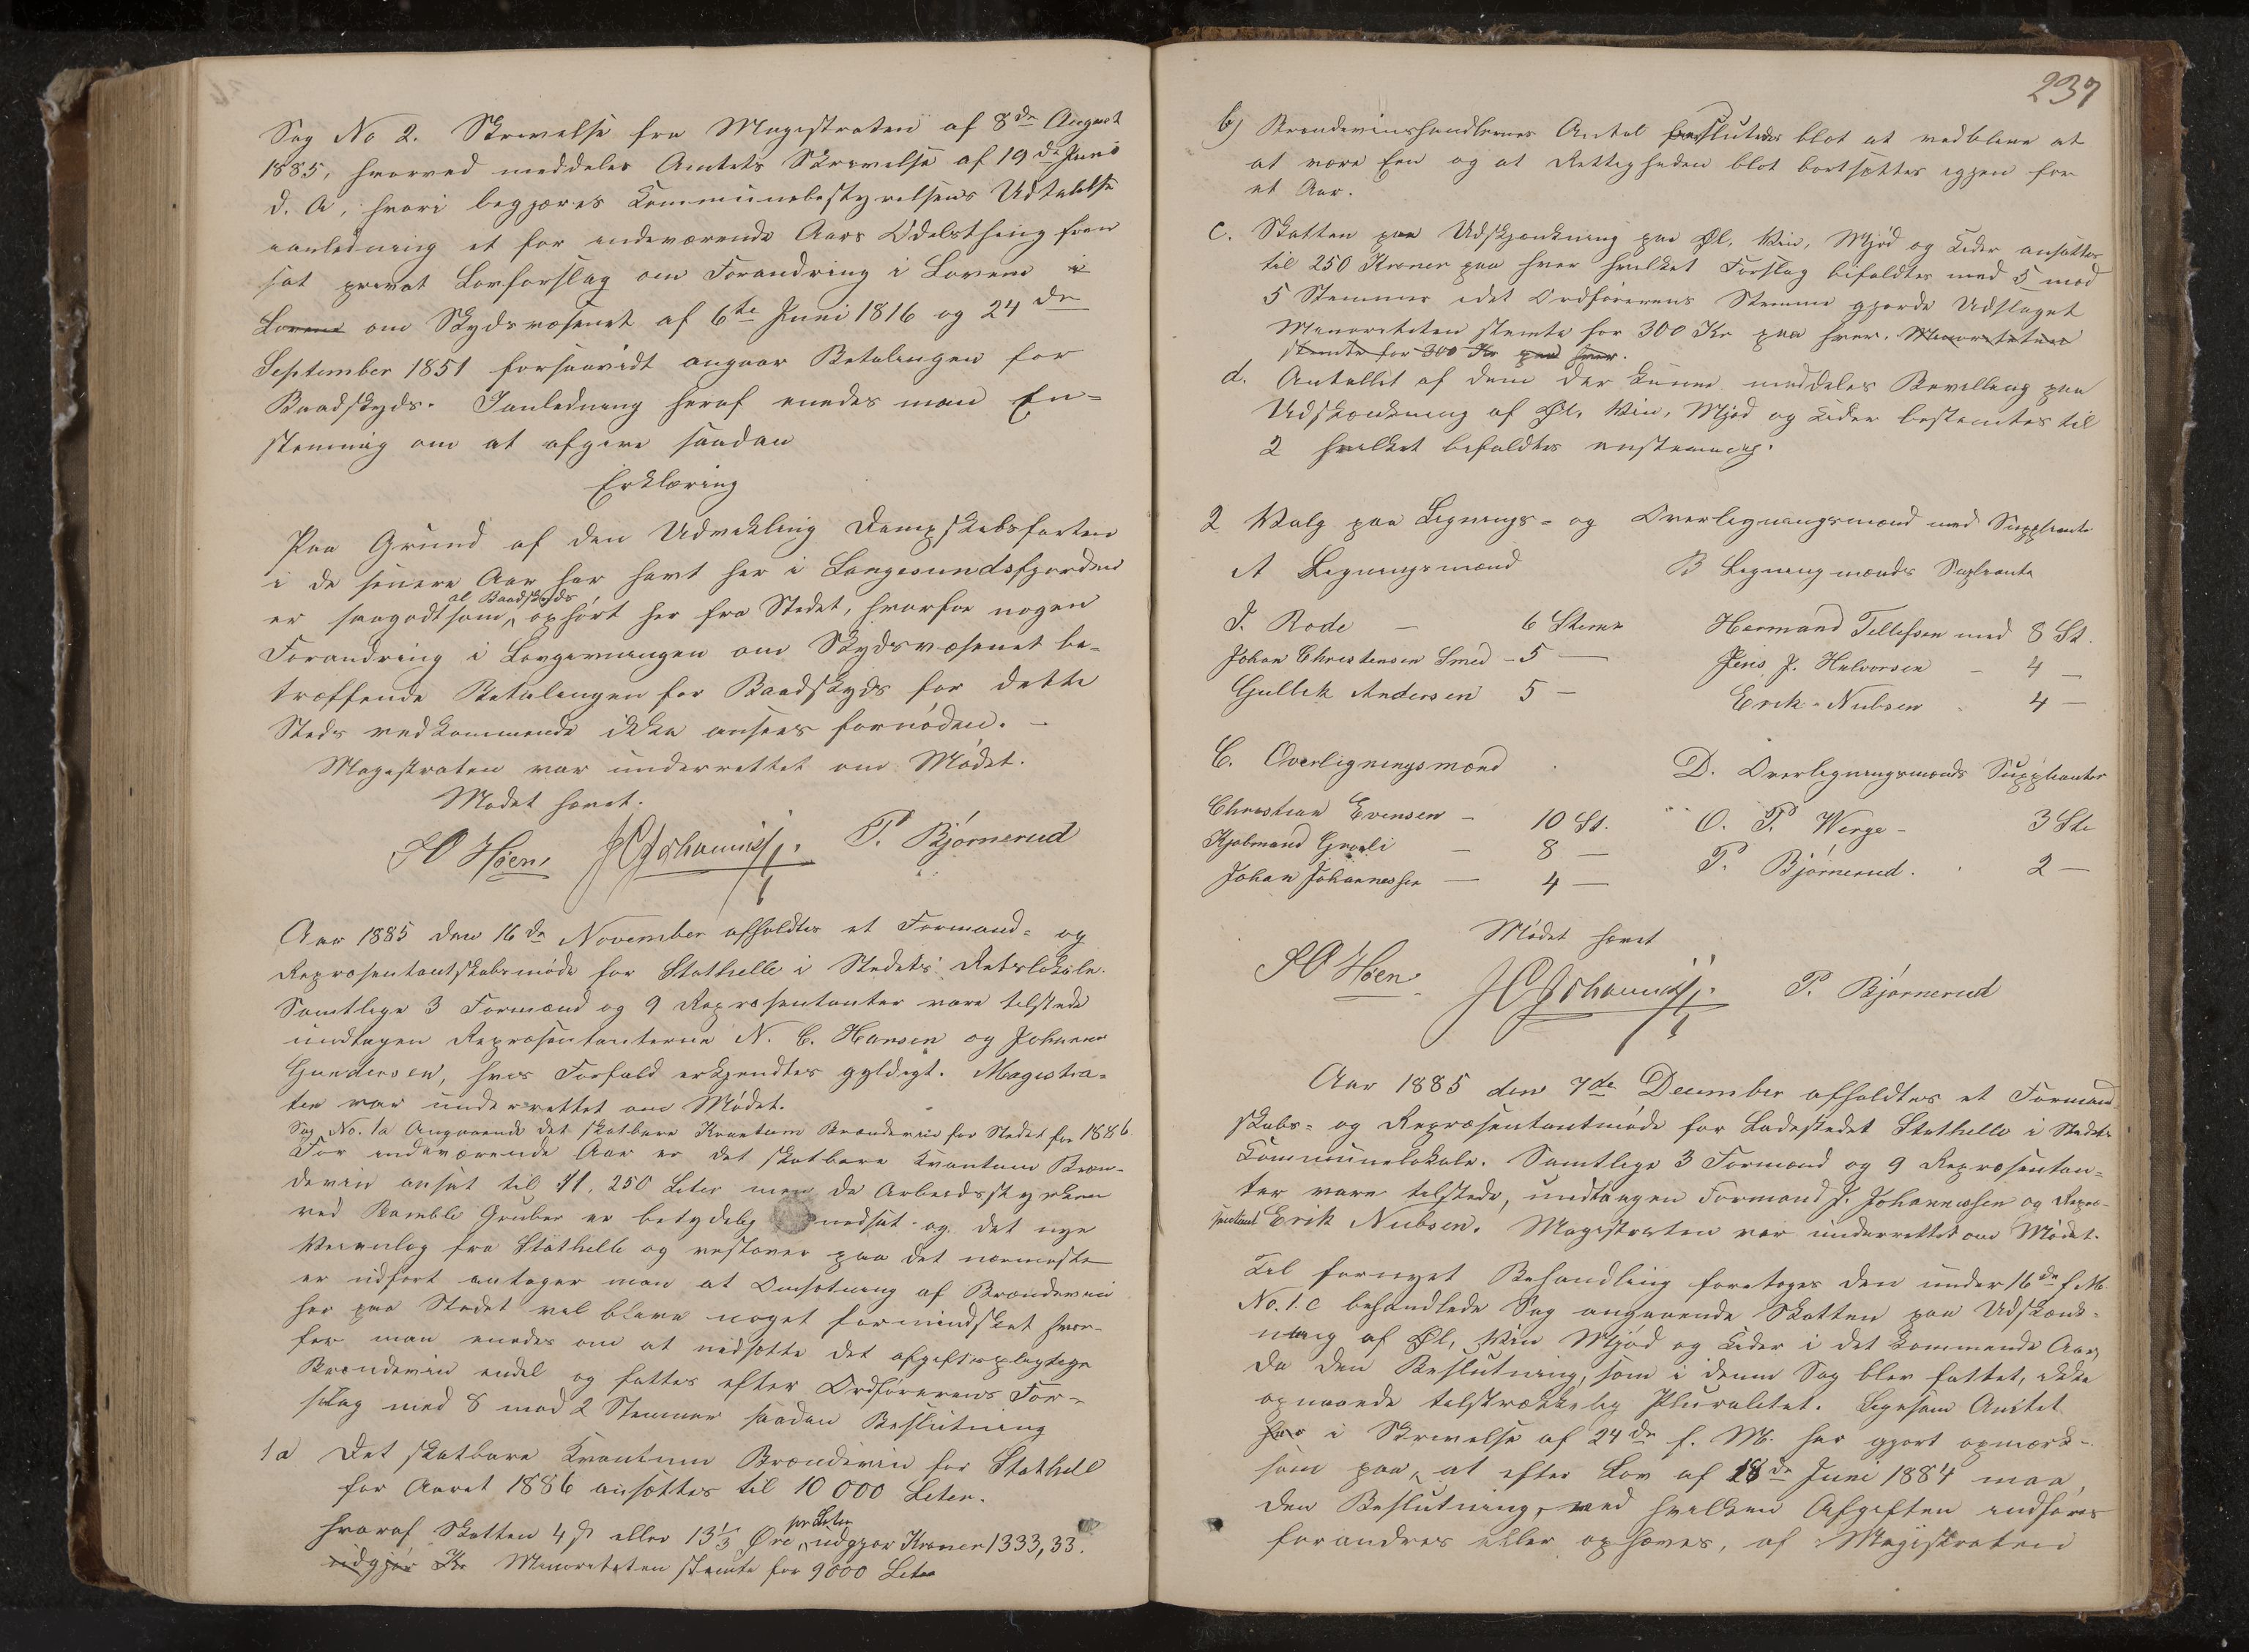 Sag No 2. Skrivelse fra Magistraten af 8de August
1885, hvorved meddeles Amtets Skrivelse af 19de Juni
d. A, hvori begjæres Kommunebestyrelsens Udtalelse
anledning et for indeværende Aars Odelsthing frem
sat privat Lovforslag om Forandring i Lovene i
Lovene om Skydsvæsenet af 6te Juni 1816 og 24de
September 1851 forsaavidt angaar Betalingen for
Baadskyds. Ianledning heraf enedes man En=
stemmig om at afgive saadan
Erklæring
Paa Grund af den Udvikling Dampskibsfarten
i de senere Aar har havt her i Langesundsfjorden
er saagodtsom al Baadskyds ophørt her fra Stedet, hvorfor nogen
Forandring i Lovgivningen om Skydsvæsenet be-
træffende Betalingen for Baadskyds for dette
Steds vedkommende ikke ansees fornøden. –
Magistraten var underrettet om Mødet.
Mødet hævet.
J C Johanniss. P. Bjørnerud
Aar 1885 den 16de November afholdtes et Formand= og
Repræsentantskabsmøde for Stathelle i Stedets Retslokale.
Samtlige 3 Formænd og 9 Repræsentanter vare tilstede
undtagen Repræsentanterne N. C. Hansen og Johannes
Gundersen, hvis Forfald erkjendtes gyldigt. Magistra=
ten var underrettet om Mødet.
Sag No. 1a Angaaende det skatbare Kvantum Brændevin for Stedet for 1886
For indeværende Aar er det skatbare Kvantum Bræn-
devin ansat til 11.250 Liter men da Arbeidsstyrken
ved Bamble Gruber er betydelig nedsat og det nye
Veianlæg fra Stathelle og vestover paa det nærmeste
er udført antager man at Omsætning af Brændevin
her paa Stedet vil blive noget formindsket hvor-
for man enedes om at nedsætte det afgiftspligtige
Brændevin endel og fattes efter Ordførerens For-
slag med 8 mod 2 Stemmer saadan Beslutning
1a Det skatbare Kvantum Brændevin for Stathelle
for Aaret 1886 ansættes til 10 000 Liter.
hvoraf Skatten 4 ß eller 13 1/3 Øre pr Liter udgjør Kroner 1333,33.
udgjør Kr Minoriteten stemte for 9000 Liter
237
b) Brændevinshandlernes Antal besluttedes blot at vedblive at
at være Een og at Rettigheden blot bortsættes igjen for
et Aar.
c. Skatten paa Udskjænkning paa Øl, Vin, Mjød og Cider ansattes
til 250 Kroner paa hver hvilket Forslag bifaldtes med 5 mod
5 Stemmer idet Ordførerens Stemme gjorde Udslaget
Minoriteten stemte for 300 Kr paa hver. Minoriteten
stemte for 300 Kr paa hver.
d. Antallet af dem der kunne meddeles Bevilling paa
Udskjænkning af Øl, Vin, Mjød og Cider bestemtes til
2 hvilket bifaldtes enstemmig.
2 Valg paa Lignings= og Overligningsmænd med Suppleanter
A Ligningsmænd B Ligningsmænds Supleanter
J. Rode – 6 Stemmer Hermand Tellefsen med 8 St.
Johan Christensen Smed – 5 – Jens J. Halvorsen – 4 –
Gullik Andersen 5 – Erik Nielsen 4 –
C. Overligningsmænd D. Overligningsmænds Suppleanter
Christian Evensen – 10 St. O. T. Werge – 3 St.
Kjøbmand Groeli – 8 – P. Bjørnerud. 2 –
Johan Johannessen – 4 –
Mødet hævet
J C Johanniss. P. Bjørnerud
Aar 1885 den 7de December afholdtes et Formand
skabs= og Repræsentantmøde for Ladestedet Stathelle i Stedets
Kommunelokale. Samtlige 3 Formænd og 9 Repræsentan=
ter vare tilstede, undtagen Formand J. Johannessen og Repræ-
sentant Erik Nielsen. Magistraten var underrettet om Mødet.
Til fornyet Behandling foretoges den under 16de f. M.
No. 1.c behandlede Sag angaaende Skatten paa Udskænk-
ning af Øl, Vin Mjød og Cider i det kommende Aar,
da den Beslutning, som i denne Sag blev fattet, ikke
opnaaede tilstrækkelig Pluralitet. Ligesom Amtet
har i Skrivelse af 24de f. M. har gjort opmærk-
som paa, at efter Lov af 28de Juni 1884 maa
den Beslutning, ved hvilken Afgiften indføres
forandres eller ophæves, af Magistraten